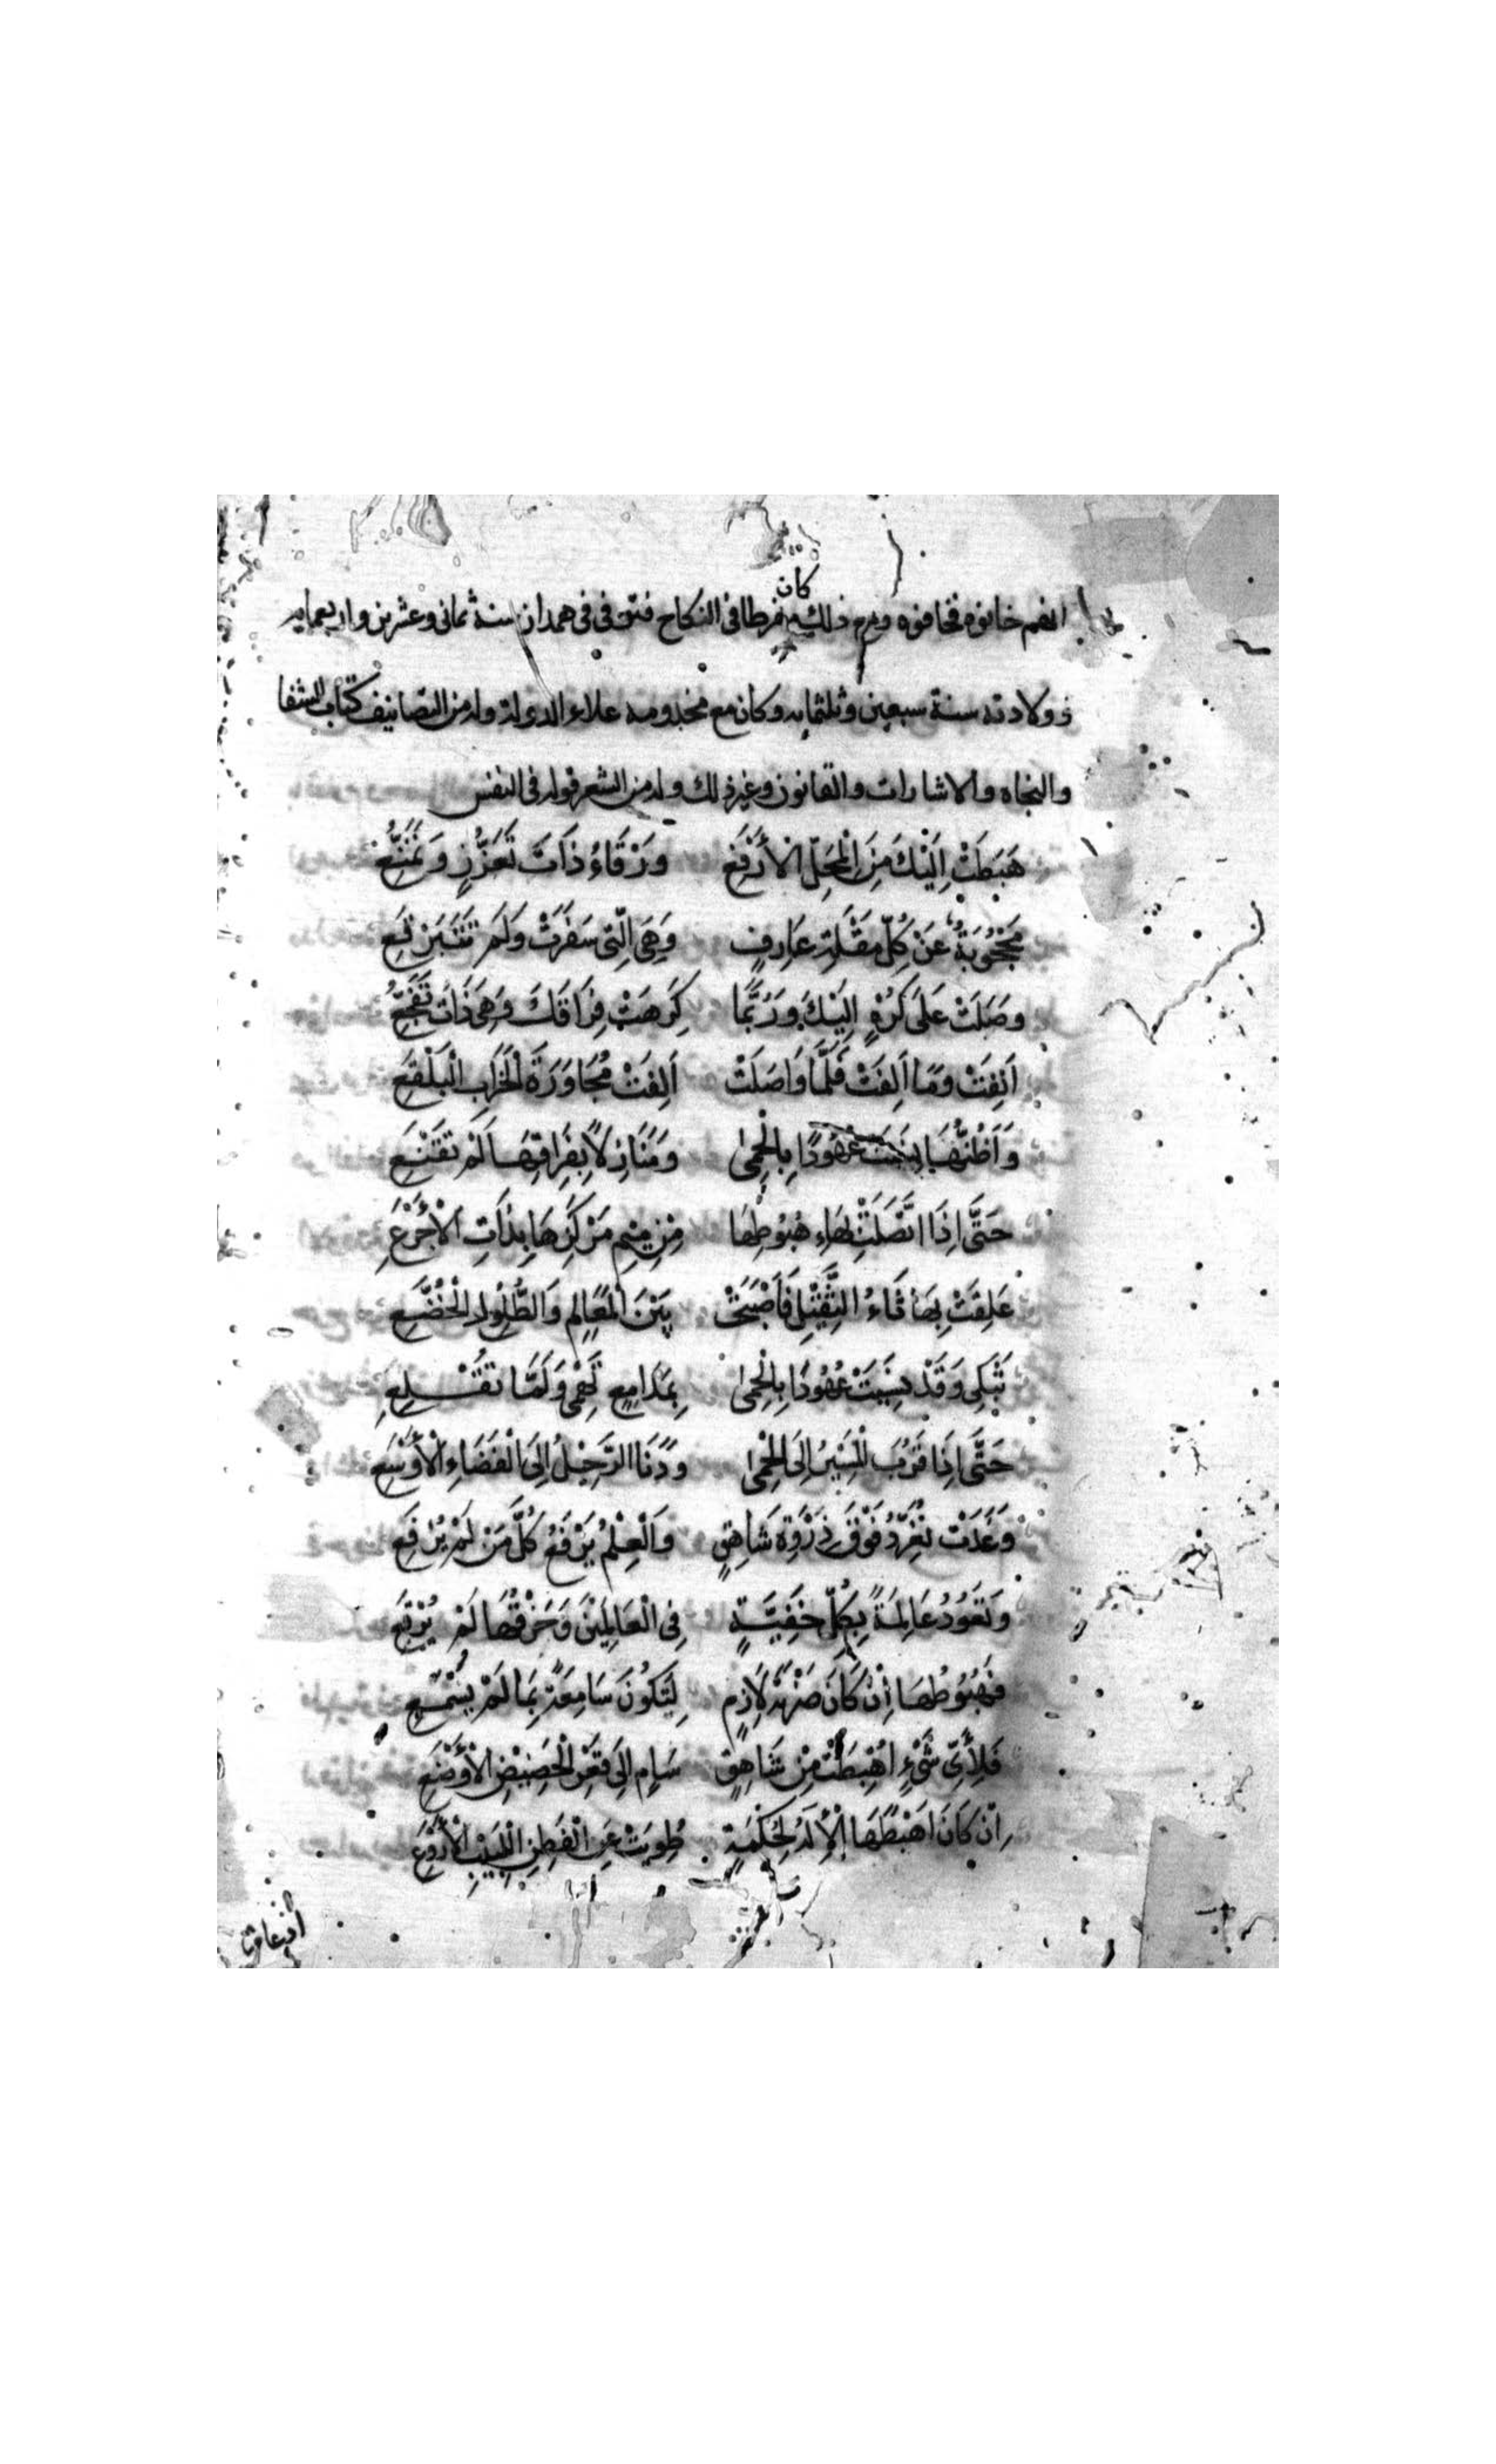 كان
انهم خانوه فخافوه ومع ذلك مفرطا في النكاح فتوفى في همدان سنة ثمانى وعشرين واربعمايه
وولادته سنة سبعين وثلثمايه وكان مع مخدومه علاء الدولة وله من التصانيف كتاب الشفا
والنجاه والاشارات والقانون وغير ذلك وله من الشعر قوله فى النفس
هَبَطَتْ اِلَيْكَ مِنَ الْمَحَلِّ الْأَرْفَعِ وَرْقَاءُ ذَاتَ تَعَزُّزٍ وَتَمَنُّعِ
مَحْجُوبَةٌ عَنْ كُلِّ مُقْلَةِ عَارِفٍ وَهِىَ الَّتِى سَفَرَتْ وَلَمْ تَتَبَرْقَعِ
وَصَلَتْ عَلَى كُرْهٍ اِلَيْكَ وَرُبَّمَا كَرِهَتْ فِرَاقَكَ وَهِىَ ذَاتُ تَفَجُّعِ
اَنِفَتْ وَمَا اَلِفَتْ فَلَمَّا وَاصَلَتْ اَلِفَتْ مُجَاوَرَةَ الْخَرَابِ الْبَلْقَعِ
وَاَظُنُّهَا نَسِيَتْ عُهُودًا بِالْحِمٰى وَمَنَازِلًا بِفِرَاقِهَا لَمْ تَقْنَعِ
حَتَّى اِذَا اتَّصَلَتْ بِهَاءِ هُبُوطِهَا مِنْ مِيْمِ مَرْكَزِهَا بِذَاتِ الْأَجْرَعِ
عَلِقَتْ بِهَا ثَاءُ الثَّقِيْلِ فَأَصْبَحَتْ بَيْنَ الْمَعَالِمِ وَالطُّلُولِ الْخُضَّعِ
تَبْكِى وَقَدْ نَسِيَتْ عُهُودًا بِالْحِمٰى بِمَدَامِعٍ تَهْمِى وَلَمَّا تُقْلِعِ
حَتَّى اِذَا قَرُبَ الْمَسِيْرُ اِلَى الْحِمٰى وَدَنَا الرَّحِيْلُ اِلَى الْفَضَاءِ الْأَوْسَعِ
وَغَدَتْ تُغَرِّدُ فَوْقَ ذِرْوَةِ شَاهِقٍ وَالْعِلْمُ يَرْفَعُ كُلَّ مَنْ لَمْ يُرْفَعِ
وَتَعُوْدُ عَالِمَةً بِكُلِّ خَفِيَّةٍ فِى الْعَالَمِيْنَ وَخَرْقُهَا لَمْ يُرْقَعِ
فَهُبُوطُهَا اِنْ كَانَ ضَرْبَةَ لَازِمٍ لِتَكُونَ سَامِعَةً بِمَا لَمْ يُسْمَعِ
فَلِأَىِّ شَىْءٍ اُهْبِطَتْ مِنْ شَاهِقٍ سَامٍ اِلَى قَعْرِ الْحَضِيْضِ الْأَوْضَعِ
اِنْ كَانَ اَهْبَطَهَا الْإِلَهُ لِحِكْمَةٍ طُوِيَتْ عَنِ الْفَطِنِ اللَّبِيْبِ الْأَرْوَعِ